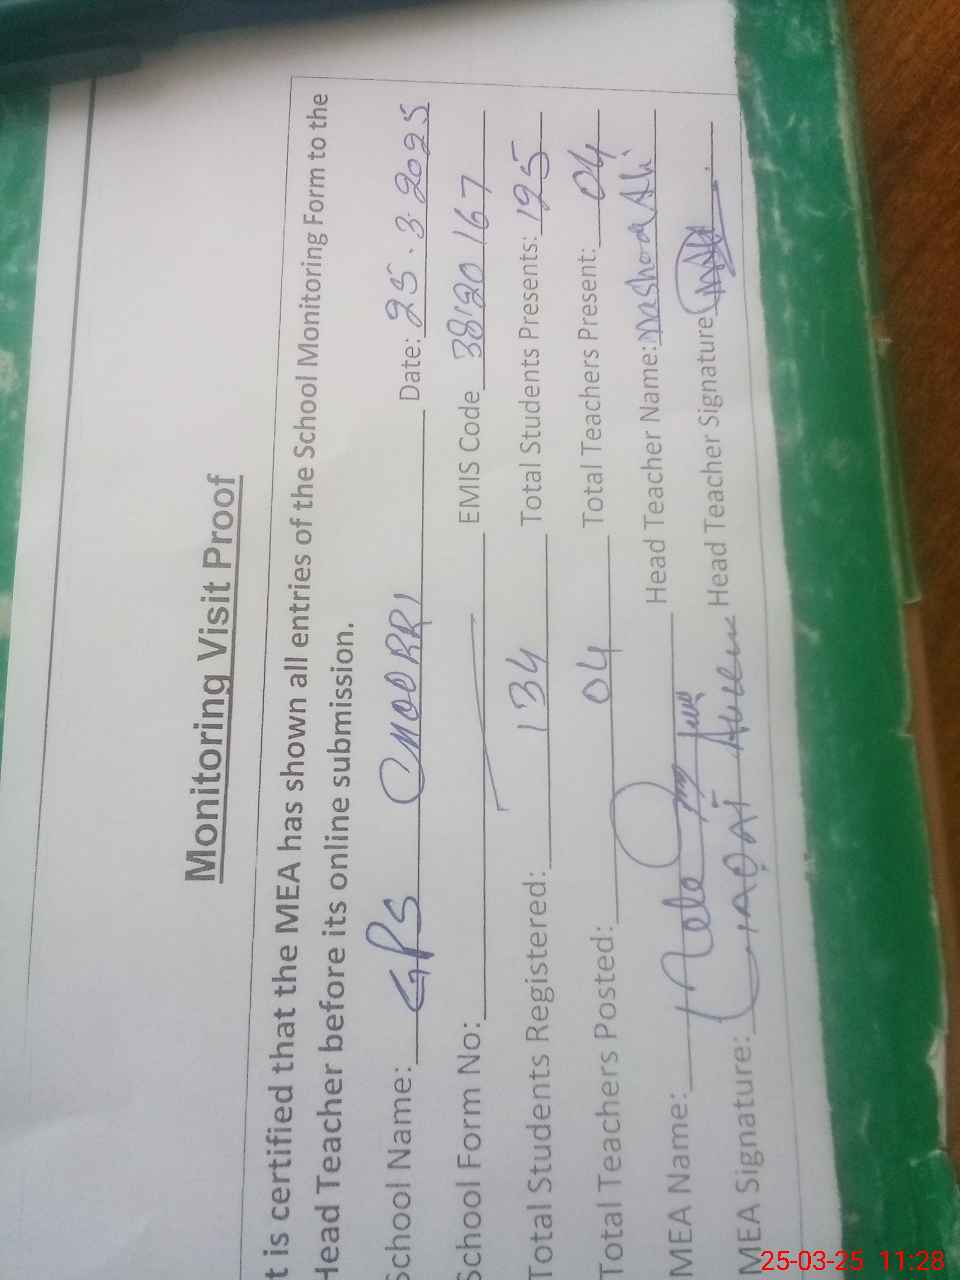 Monitoring Visit Proof
t is certified that the MEA has shown all entries of the School Monitoring Form to the
Head Teacher before its online submission.
School Name: GPS Date: 25.3.2025
School Form No: EMIS Code 38120167
Total Students Registered: 134 Total Students Presents: 125
Total Teachers Posted: 04 Total Teachers Present: 04
MEA Name: Head Teacher Name: Ali
MEA Signature: LIAQAT Head Teacher Signature
25-03-25 11:28